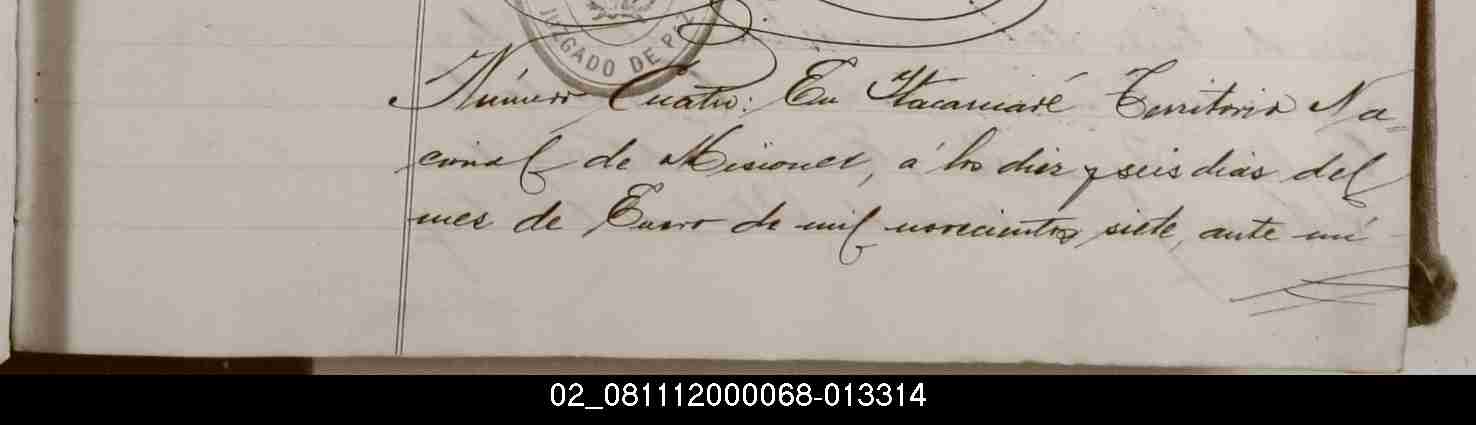 JUZGADO DE P
Número Cuatro: En Itacaruaré Territorio Na=
cional de Misiones, á los diez y seis dias del
mes de Enero de mil novecientos siete, ante mí
02_081112000068-013314